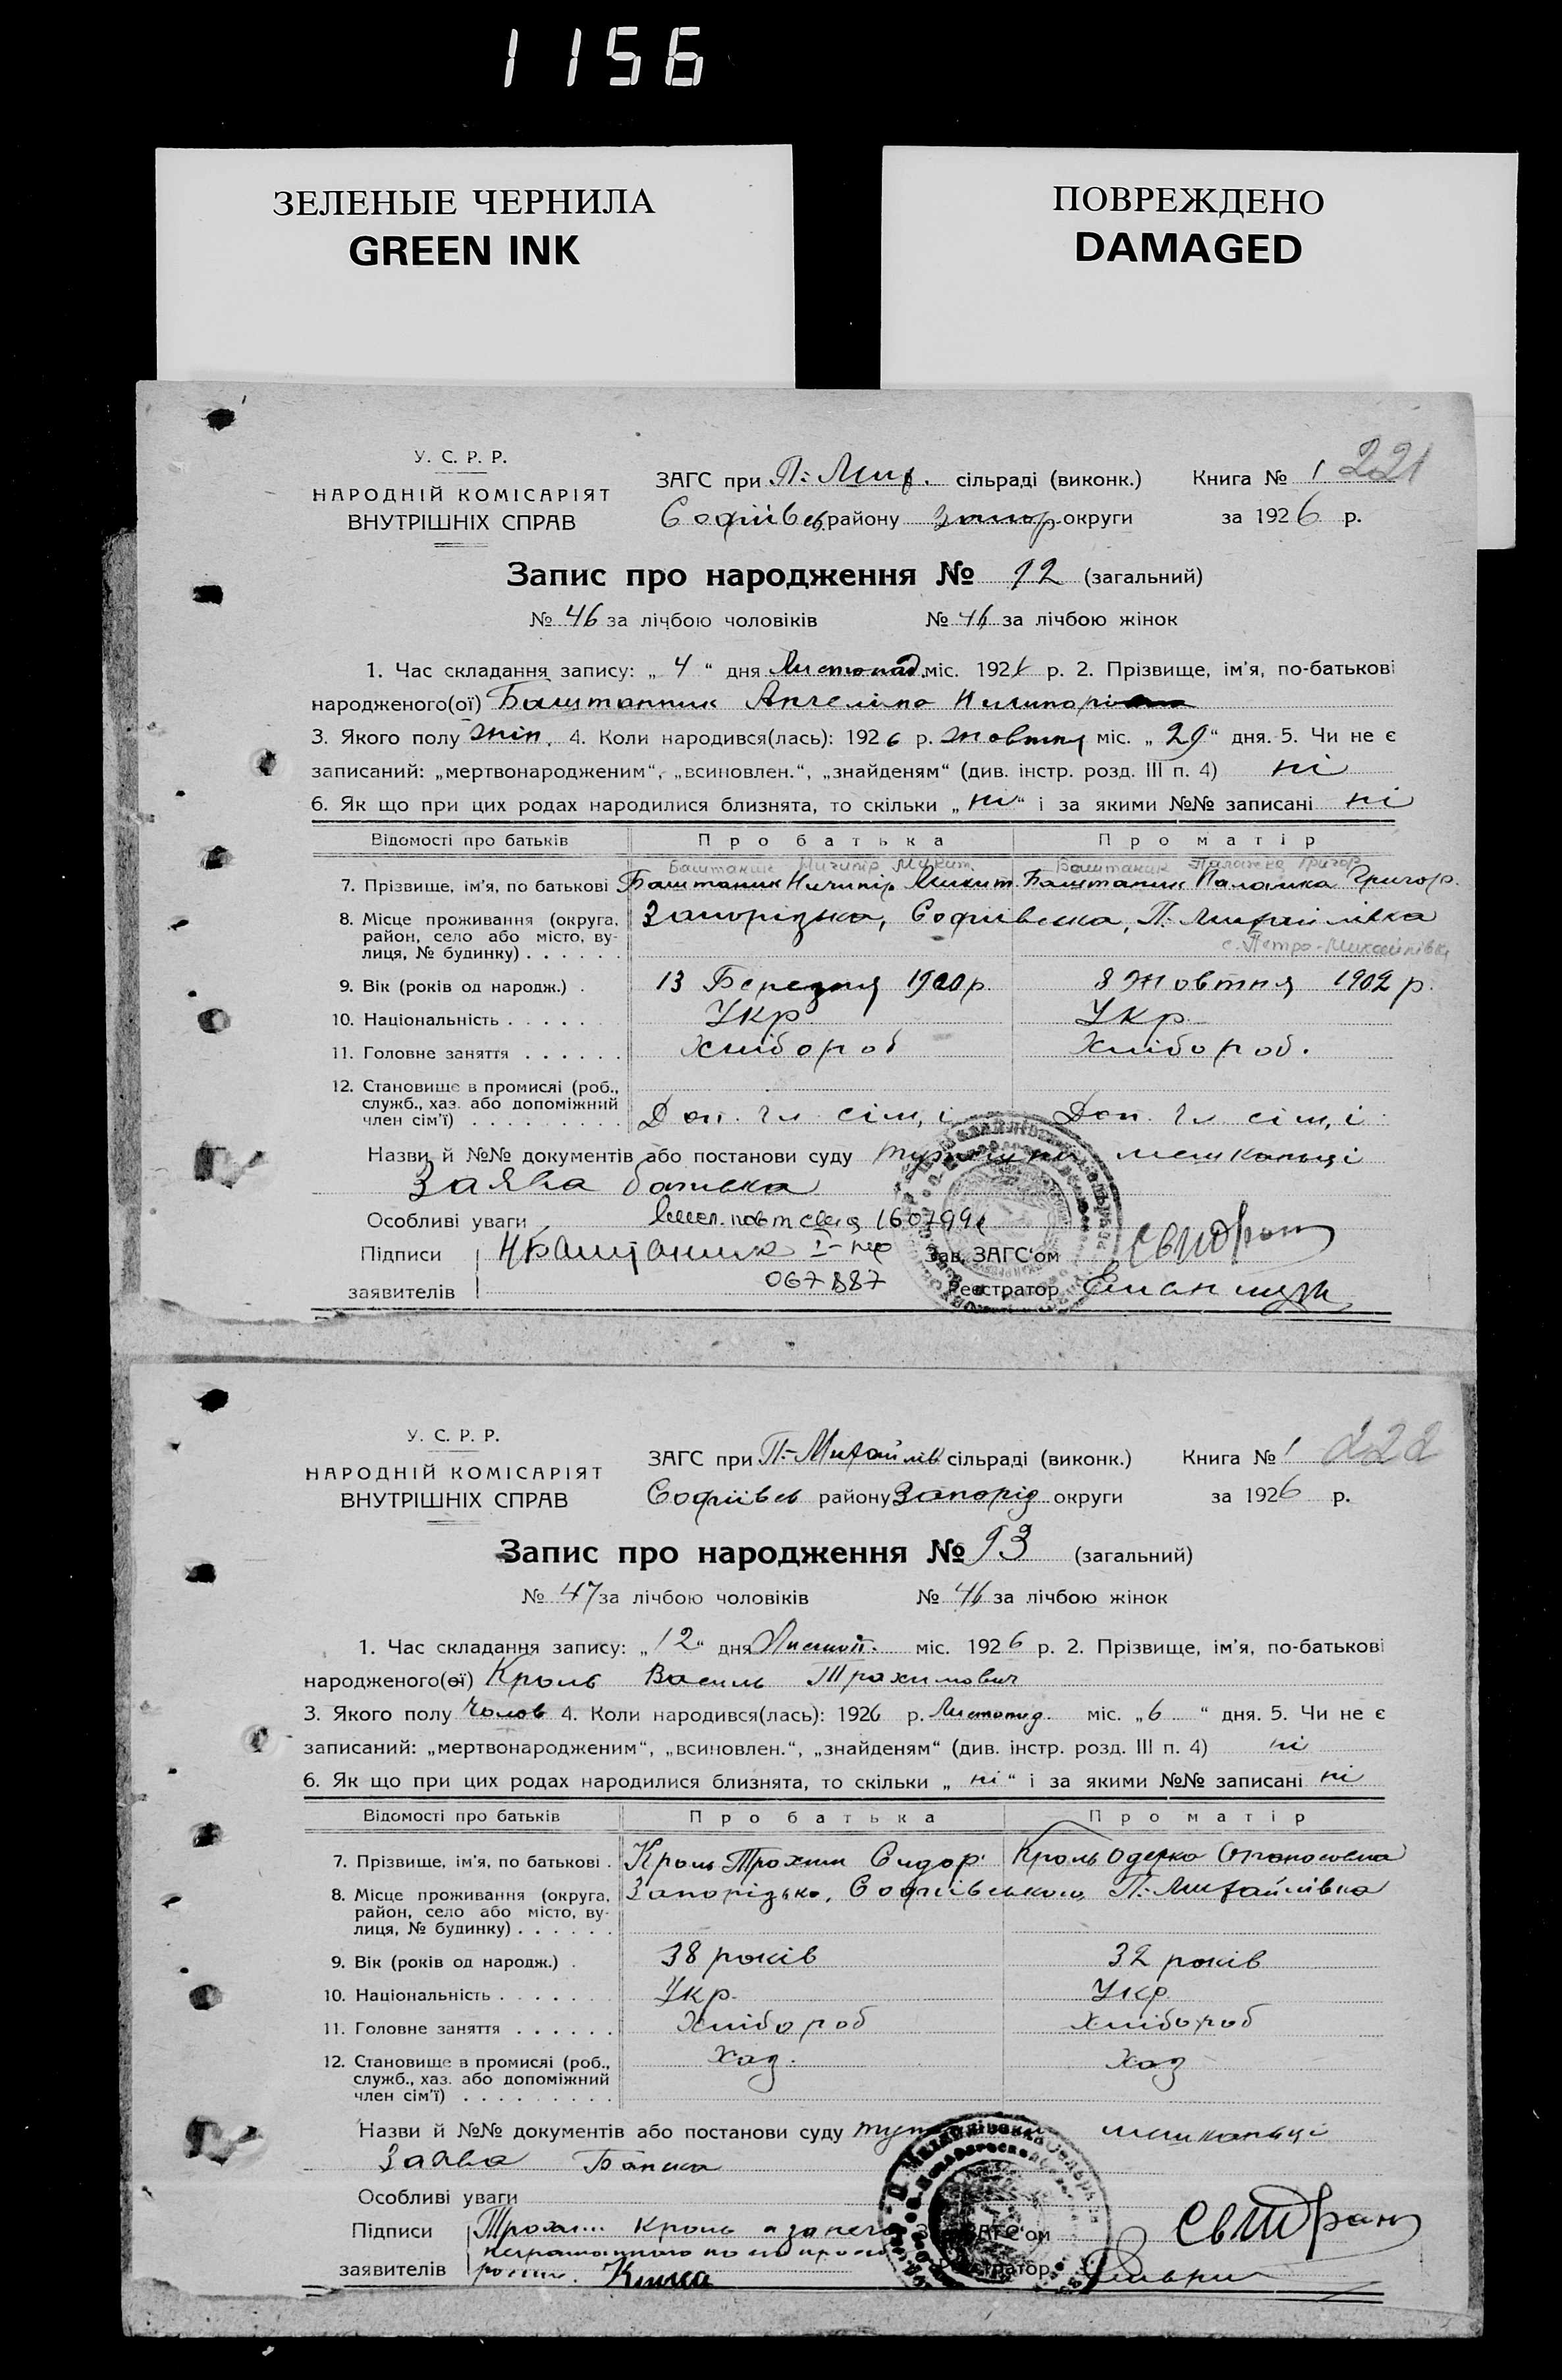 1156
ЗЕЛЕНЫЕ ЧЕРНИЛА
GREEN INK
ПОВРЕЖДЕНО
DAMAGED
221
У. С. Р. Р.
НАРОДНІЙ КОМІСАРІЯТ
ВНУТРІШНІХ СПРАВ
ЗАГС при П.-Мих. сільраді (виконк.) Книга № 1
Софіївсь району Запор. округи за 1926 р.
Запис про народження № 92 (загальний)
№ 46 за лічбою чоловіків № 46 за лічбою жінок
1. Час складання запису: „ 4 “ дня Листопад. міс. 192 р. 2. Прізвище, ім’я, по-батькові
народженого(ої) Баштанник Ангеліна
3. Якого полу жін. 4. Коли народився(лась): 1926 р. жовтня міс. „ 29 “ дня. 5. Чи не є
записаний: „мертвонародженим“, „всиновлен.“, „знайденям“ (див. інстр. розд. III п. 4) ні
6. Як що при цих родах народилися близнята, то скільки „ ні “ і за якими №№ записані ні
Відомості про батьків Про батька Про матір
Баштаник Ничипір. Микит. Баштаник Палажка Григор
7. Прізвище, ім’я, по батькові Баштаник Ничипір Микит. Баштаник Палажка Григор.
8. Місце проживання (округа, Запорізька, Софіївська, П.-Михайлівка
район, село або місто, ву- с. Петро-Михайлівка
лиця, № будинку) . . . . . .
9. Вік (років од народж.) . 13 Березня 1900 р. 8 Жовтня 1902 р.
10. Національність . . . . . Укр. Укр.
11. Головне заняття . . . . . . Хлібороб Хлібороб.
12. Становище в промислі (роб.,
служб., хаз. або допоміжний
член сім’ї) . . . . . . . . . Доп. чл. сім,ї Доп. чл сім,ї
Назви й №№ документів або постанови суду мешканці
Заява батька
Особливі уваги
Підписи Н Баштаник Зав. ЗАГС‘ом
067887
заявителів Реєстратор
222
У. С. Р. Р.
НАРОДНІЙ КОМІСАРІЯТ
ВНУТРІШНІХ СПРАВ
ЗАГС при П.-Михайлів сільраді (виконк.) Книга № 1
Софіївсь району Запоріз округи за 1926 р.
Запис про народження № 93 (загальний)
№ 47 за лічбою чоловіків № 46 за лічбою жінок
1. Час складання запису: „ 12 “ дня Листоп. міс. 1926 р. 2. Прізвище, ім’я, по-батькові
народженого(ої) Кроль Василь Трохимович
3. Якого полу Чолов 4. Коли народився(лась): 1926 р. Листопад. міс. „ 6 “ дня. 5. Чи не є
записаний: „мертвонародженим“, „всиновлен.“, „знайденям“ (див. інстр. розд. III п. 4) ні
6. Як що при цих родах народилися близнята, то скільки „ ні “ і за якими №№ записані ні
Відомості про батьків Про батька Про матір
7. Прізвище, ім’я, по батькові . Кроль Трохим Сидор. Кроль
8. Місце проживання (округа, Запорізько, Софіївського, П.-Михайлівка
район, село або місто, ву-
лиця, № будинку) . . . . . .
9. Вік (років од народж.) . 38 років 32 років
10. Національність . . . . . . Укр. Укр.
11. Головне заняття . . . . . . Хлібороб Хлібороб
12. Становище в промислі (роб., Хаз. Хаз
служб., хаз. або допоміжний
член сім’ї) . . . . . . . . .
Назви й №№ документів або постанови суду мешканці
Заява Батька
Особливі уваги
Підписи Кроль а за него Зав. ЗАГС‘ом
заявителів Реєстратор